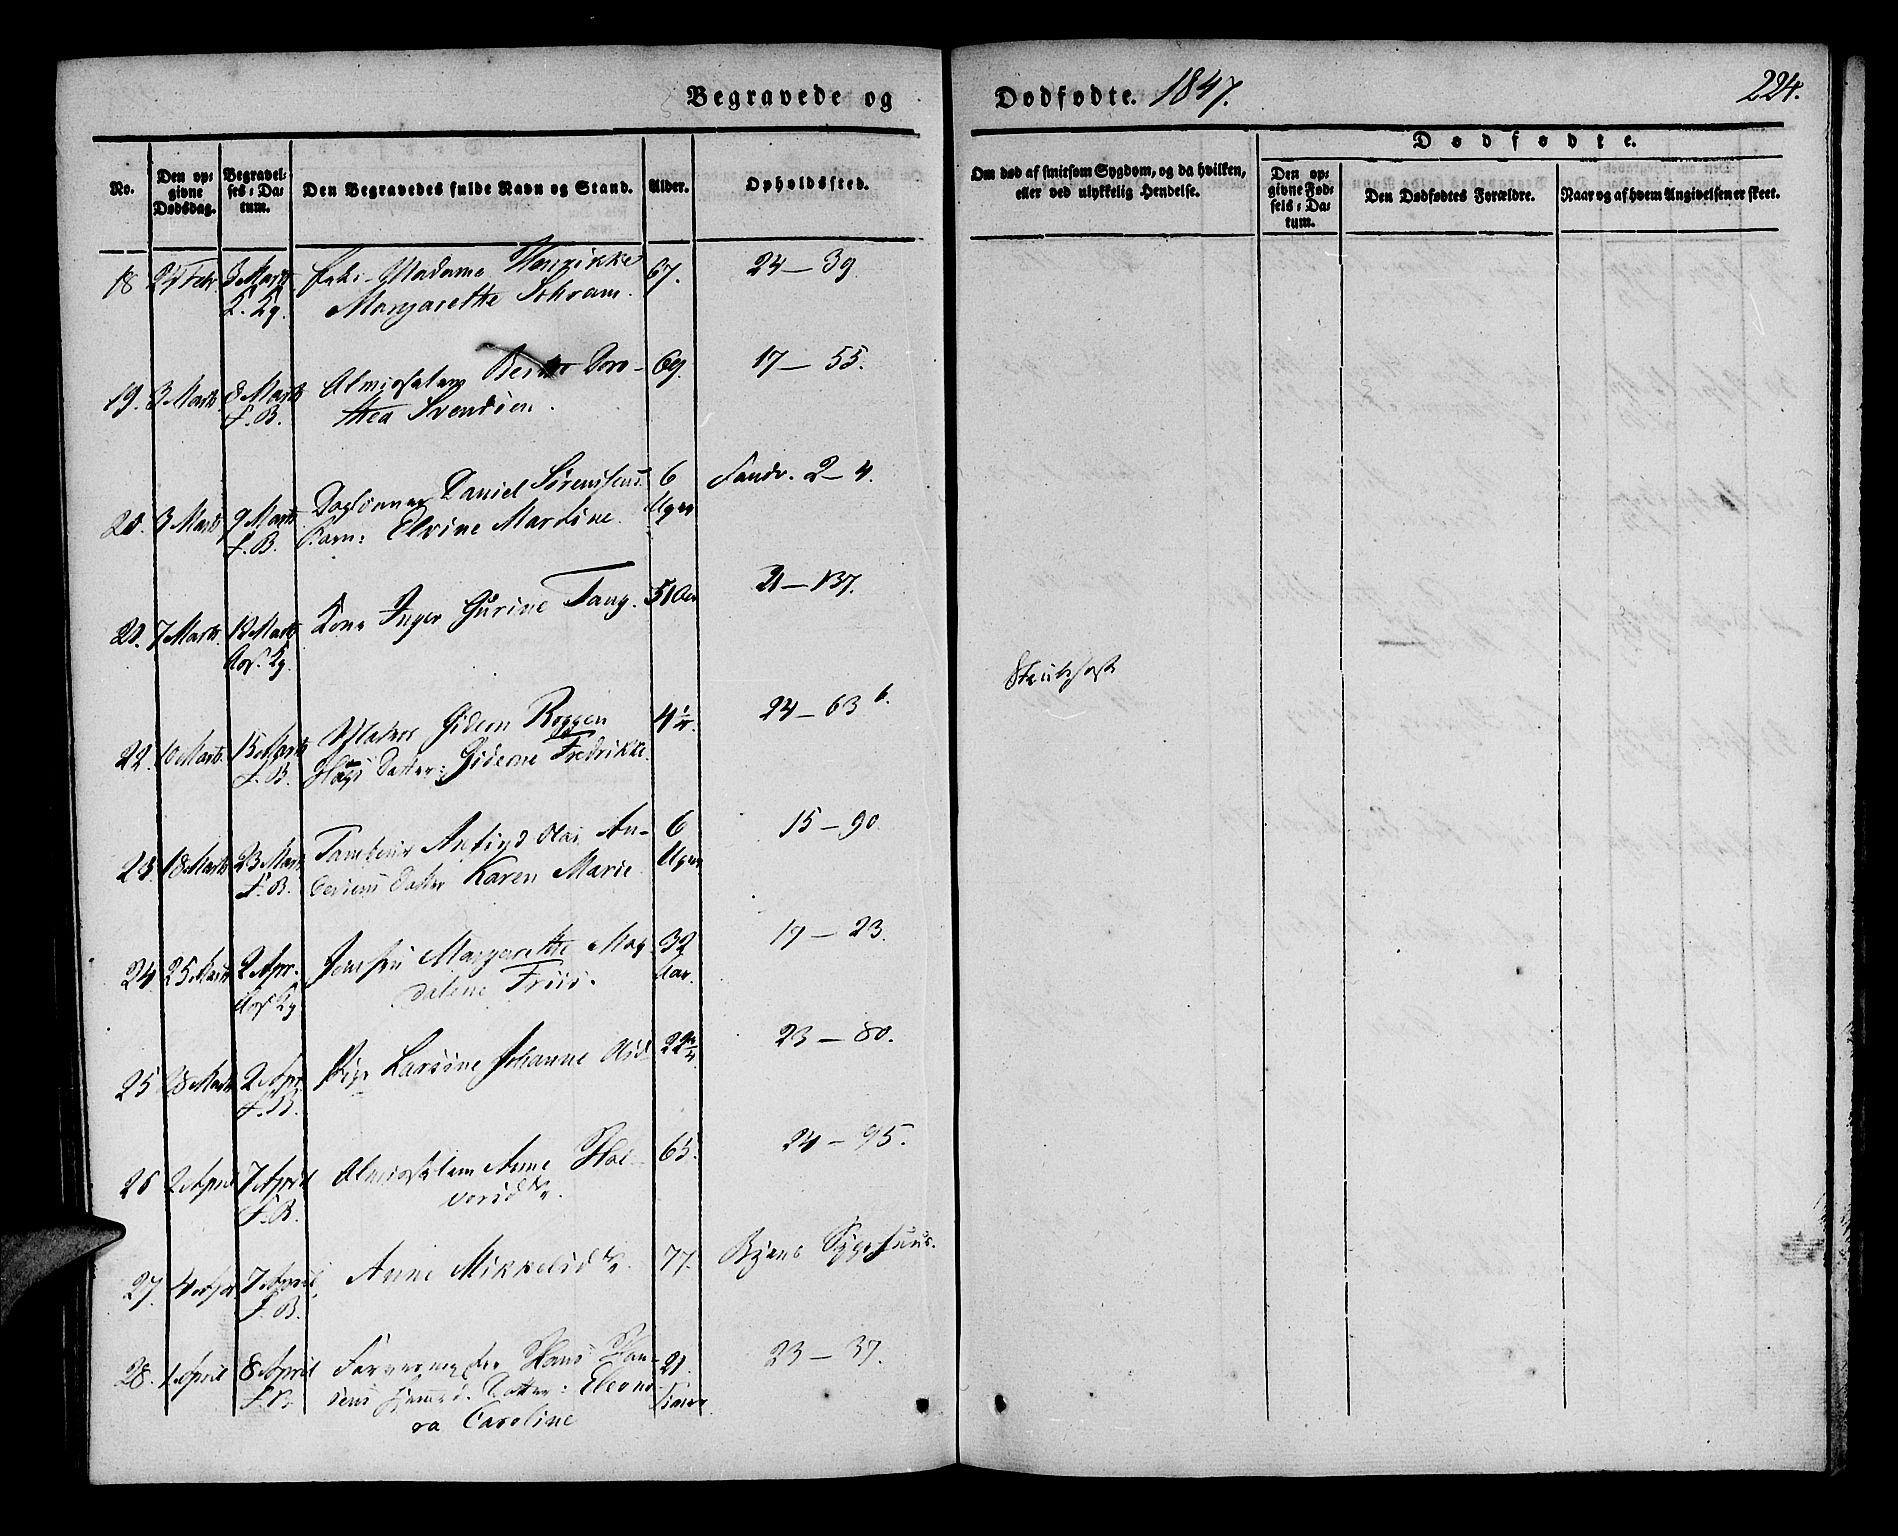 Begravede og
Dødfødte. 1847.
224.
No.
Den opgivne Dødsdag.
Begravelses-Datum.
Den Begravedes fulde Navn og Stand.
Alder.
Opholdssted.
Om død af smitsom Sygdom, og da hvilken, eller ved ulykkelig Hendelse.
Dødfødte.
Den opgivne Fødsels-Datum.
Den Dødfødtes Forældre.
Naar og af hvem Angivelsen er skeet.
18 24 Febr 3 Marts Madame Henrikke 67. 24 – 39.
K. Kg. Margarethe Schram.
19. 3 Marts 8 Marts Almisselem Doro- 69. 17 – 55.
F. B. thea Svendsen.
20. 3 Marts 9 Marts Dagleiner Daniel Sørensens 6 Sandv. 2 – 4.
F. B. Barn: Elvine Martine. Uger
21. 7 Marts 12 Marts Kone Inger Gurine Tang. 51 Aar 21 – 137.
Kg.
22. 10 Marts 15 Marts Gideon Roggen 4 24 – 63 b.
F. B. Datter: Gideone Fredrikke.
23. 18 Marts 23 Marts Tambour An- 6 15 – 90
F. B. Datter Karen Marie Uger
24. 25 Marts 2 Apr. Jomfru Margarethe Mag- 32 17 – 23.
Kg dalene Friis. Aar.
25 28 Marts 2 Apr. Pige Larsine Johanne 22 23 – 80.
F. B.
26 2 April 7 April Almisselem Anne Hal- 65. 24 – 95.
F. B. vorsdtr.
27. 4 Apr. 7 April Anne Mikkelsdtr. 77. Byens Sygehuus.
F. B.
28. 1 April 8 April Hans Han- 21. 23 – 37.
F. B. sens Datter: Eleono-
ra Caroline